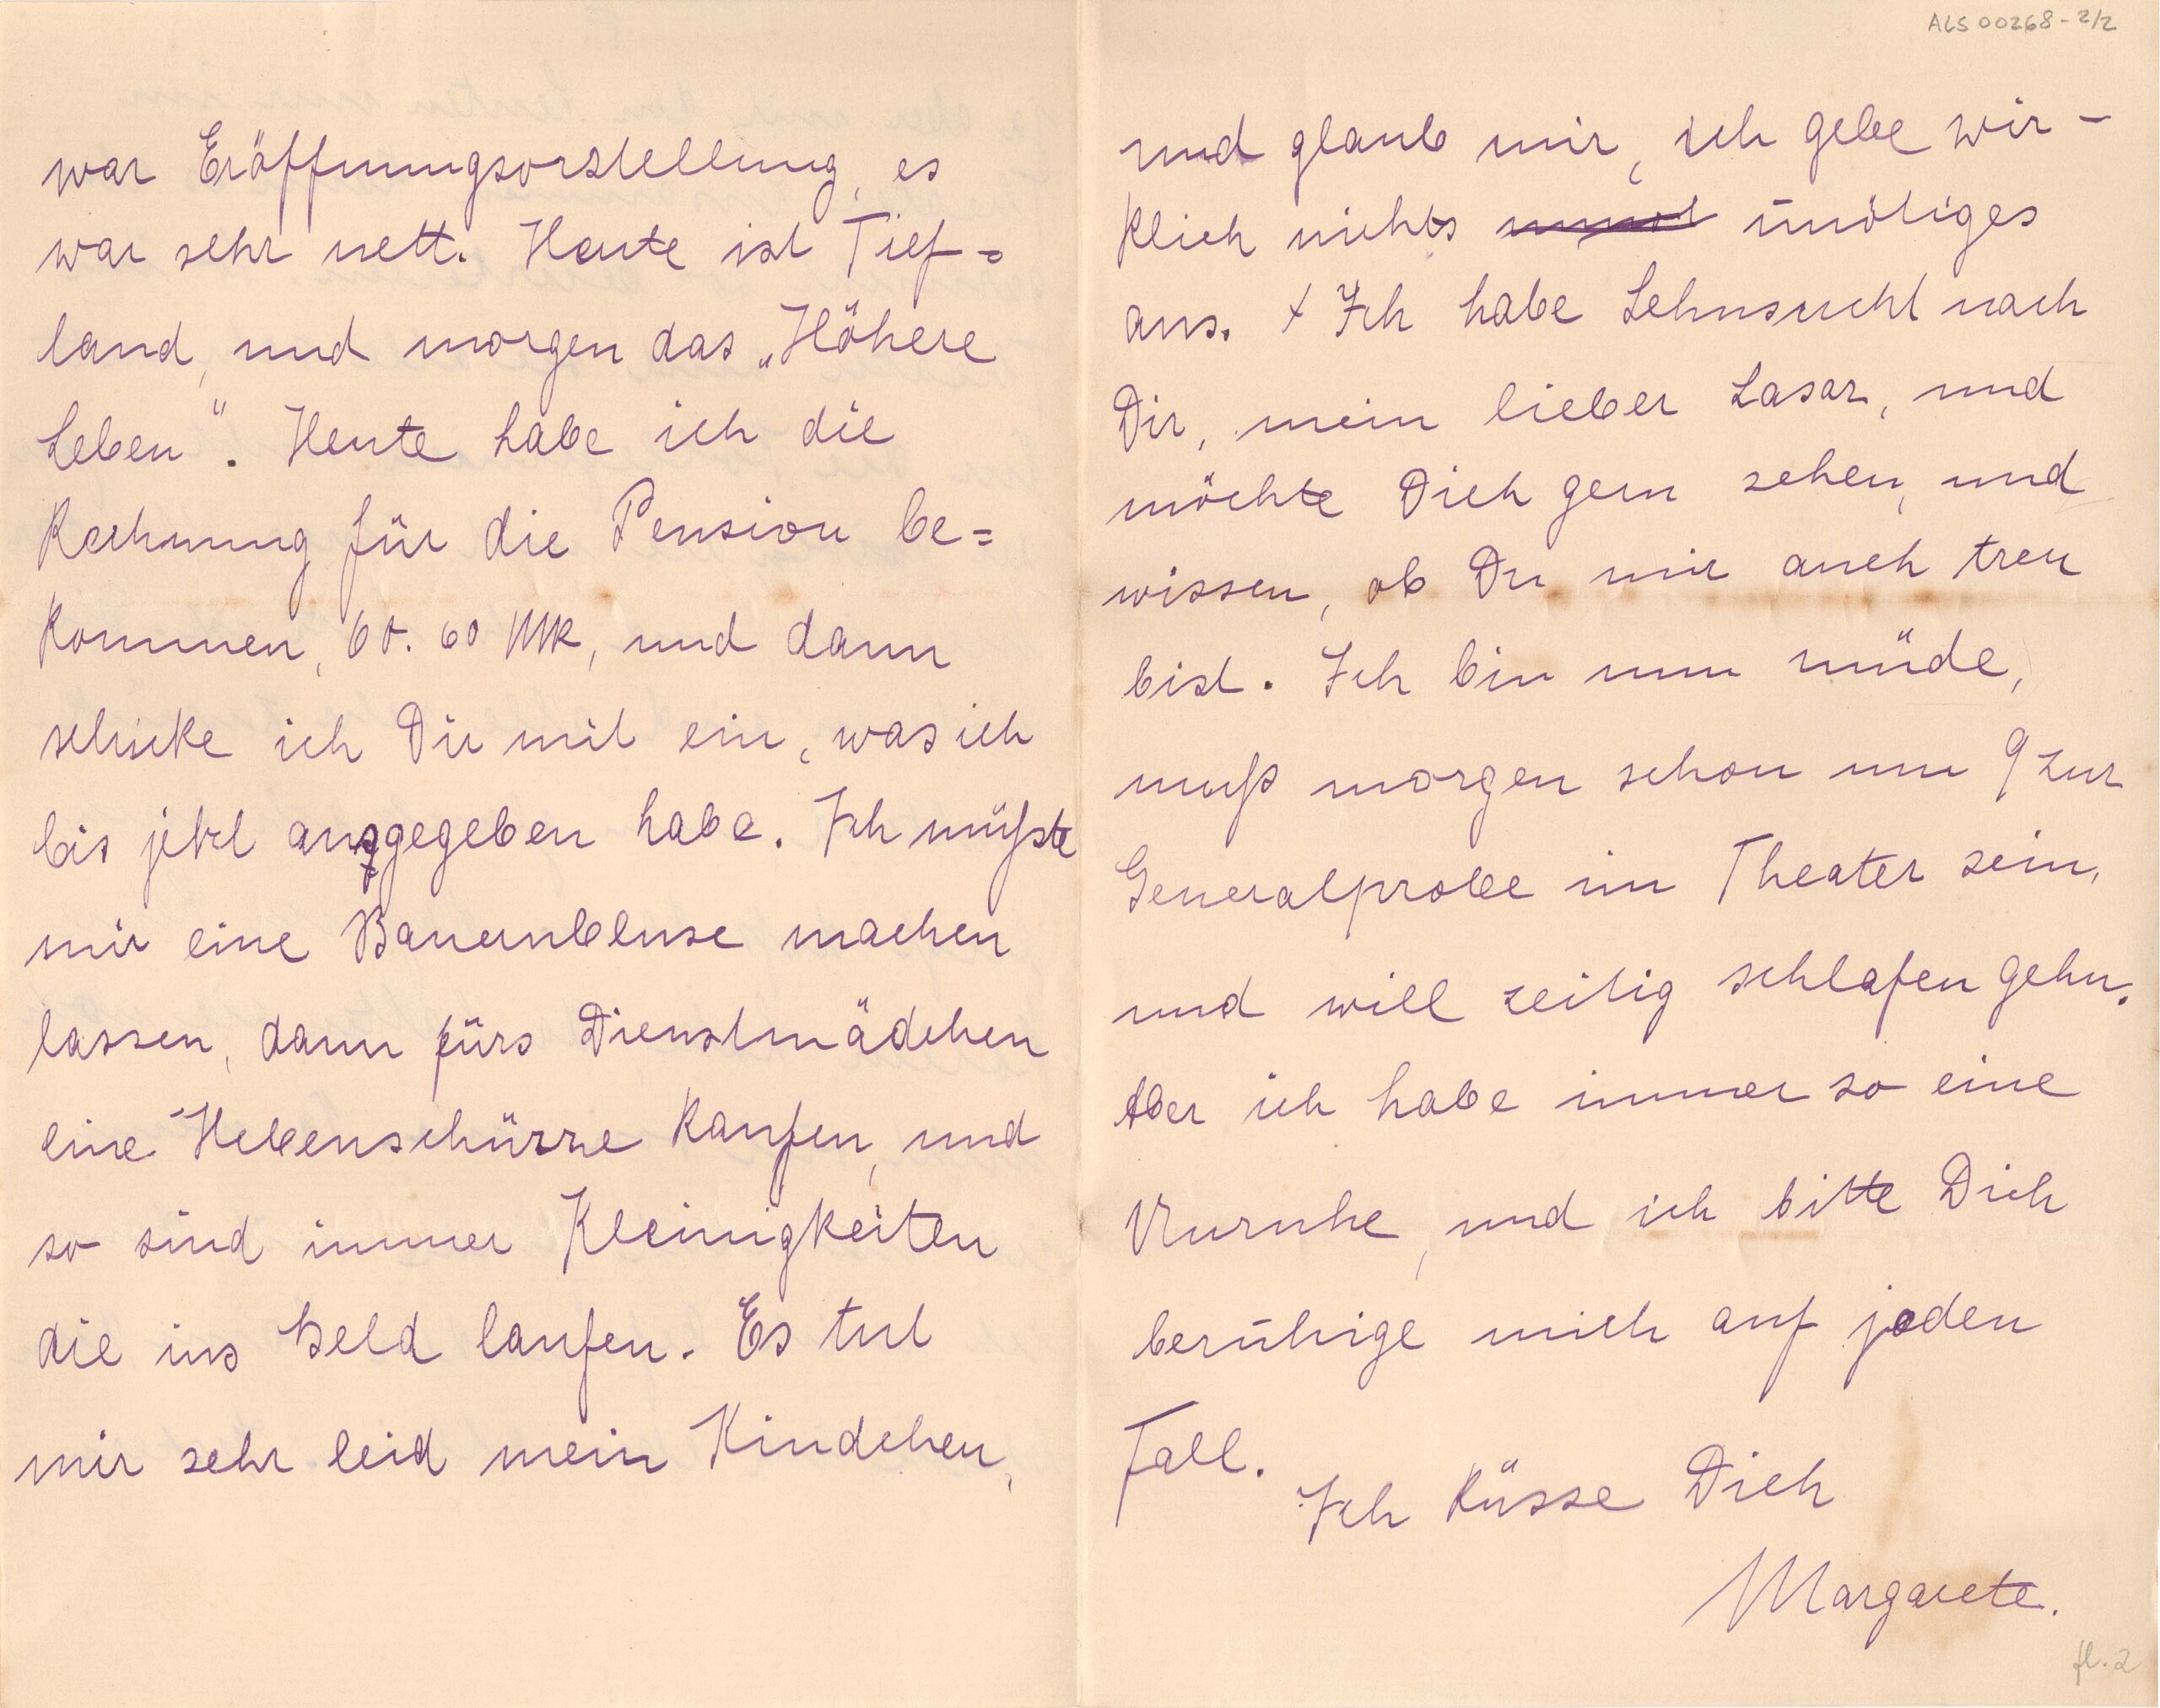 ALS 00268-2/2
war Eröffnungsvorstellung, es
war sehr nett. Heute ist Tief=
land, und morgen das „Höhere
Leben". Heute habe ich die
Rechnung für die Pension be=
kommen, 60.60 Mk, und dann
schicke ich Dir mit ein, was ich
bis jetzt ausgegeben habe. Ich müßte
mir eine Bauernbluse machen
lassen, dann fürs Dienstmädchen
eine Hebenschürze kaufen, und
so sind immer Kleinigkeiten
die ins Geld laufen. Es tut
mir sehr leid mein Kindchen,
und glaub mir, ich gebe wir-
klich nichts unötiges
aus. Ich habe Sehnsucht nach
Dir, mein lieber Lasar, und
möchte Dich gern sehen, und
wissen, ob Du mir auch treu
bist. Ich bin nun müde,
muß morgen schon um 9 zur
Generalprobe im Theater sein,
und will zeitig schlafen gehn.
Aber ich habe immer so eine
Unruhe, und ich bitte Dich
beruhige mich auf jeden
Fall.
Ich küsse Dich
Margarete.
fl. 2